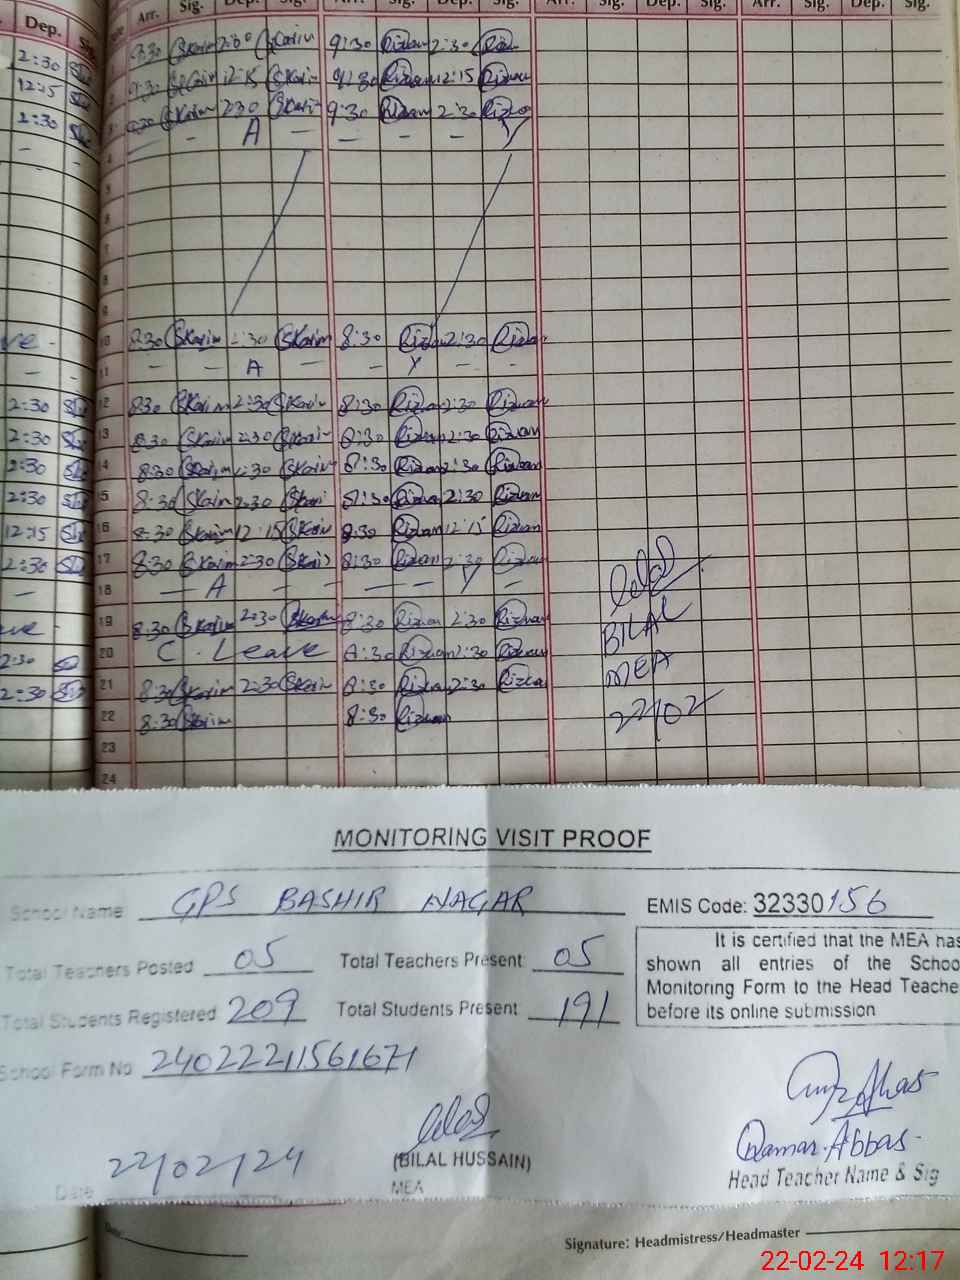 Dep. Sig. Arr. Sig. Dep. Sig. Arr. Sig. Dep. Sig. Arr. Sig. Dep. Sig. Arr. Sig. Dep. Sig.
2:30 9:30 SKarim 2:30 SKarim 9:30 Rizwan 2:30
12:15 9:30 SKarim 12:15 SKarim 9:30 Rizwan 12:15 Rizwan
2:30 3 9:30 SKarim 2:30 SKarim 9:30 Rizwan 2:30 Rizwan
- - 4 - - A - - - - Y
5
6
7
8
9
10 8:30 SKarim 2:30 SKarim 8:30 Rizwan 2:30 Rizwan
- - 11 - - A - - Y - -
2:30 12 8:30 SKarim 2:30 SKarim 8:30 Rizwan 2:30 Rizwan
2:30 13 8:30 SKarim 2:30 SKarim 8:30 Rizwan 2:30 Rizwan
2:30 14 8:30 SKarim 2:30 SKarim 8:30 Rizwan 2:30 Rizwan
2:30 15 8:30 SKarim 2:30 SKarim 8:30 Rizwan 2:30 Rizwan
12:15 16 8:30 SKarim 12:15 SKarim 8:30 Rizwan 12:15 Rizwan
2:30 17 8:30 SKarim 2:30 SKarim 8:30 Rizwan 2:30 Rizwan
- 18 - A - - - - Y -
19 8:30 SKarim 2:30 SKarim 8:30 Rizwan 2:30 Rizwan
BILAL
2:30 20 C. Leave 8:30 Rizwan 2:30 Rizwan
MEA
2:30 21 8:30 SKarim 2:30 SKarim 8:30 Rizwan 2:30 Rizwan
22 8:30 SKarim 8:30 Rizwan
22/02
23
24
MONITORING VISIT PROOF
School Name GPS BASHIR NAGAR EMIS Code: 32330156
Total Teachers Posted 05 Total Teachers Present 05
Total Students Registered 209 Total Students Present 191
It is certified that the MEA has
shown all entries of the School
Monitoring Form to the Head Teacher
before its online submission
School Form No 24022211561671
Qamar Abbas
22/02/24 (BILAL HUSSAIN)
Date MEA
Head Teacher Name & Sig
Date:
Signature: Headmistress/Headmaster
22-02-24 12:17